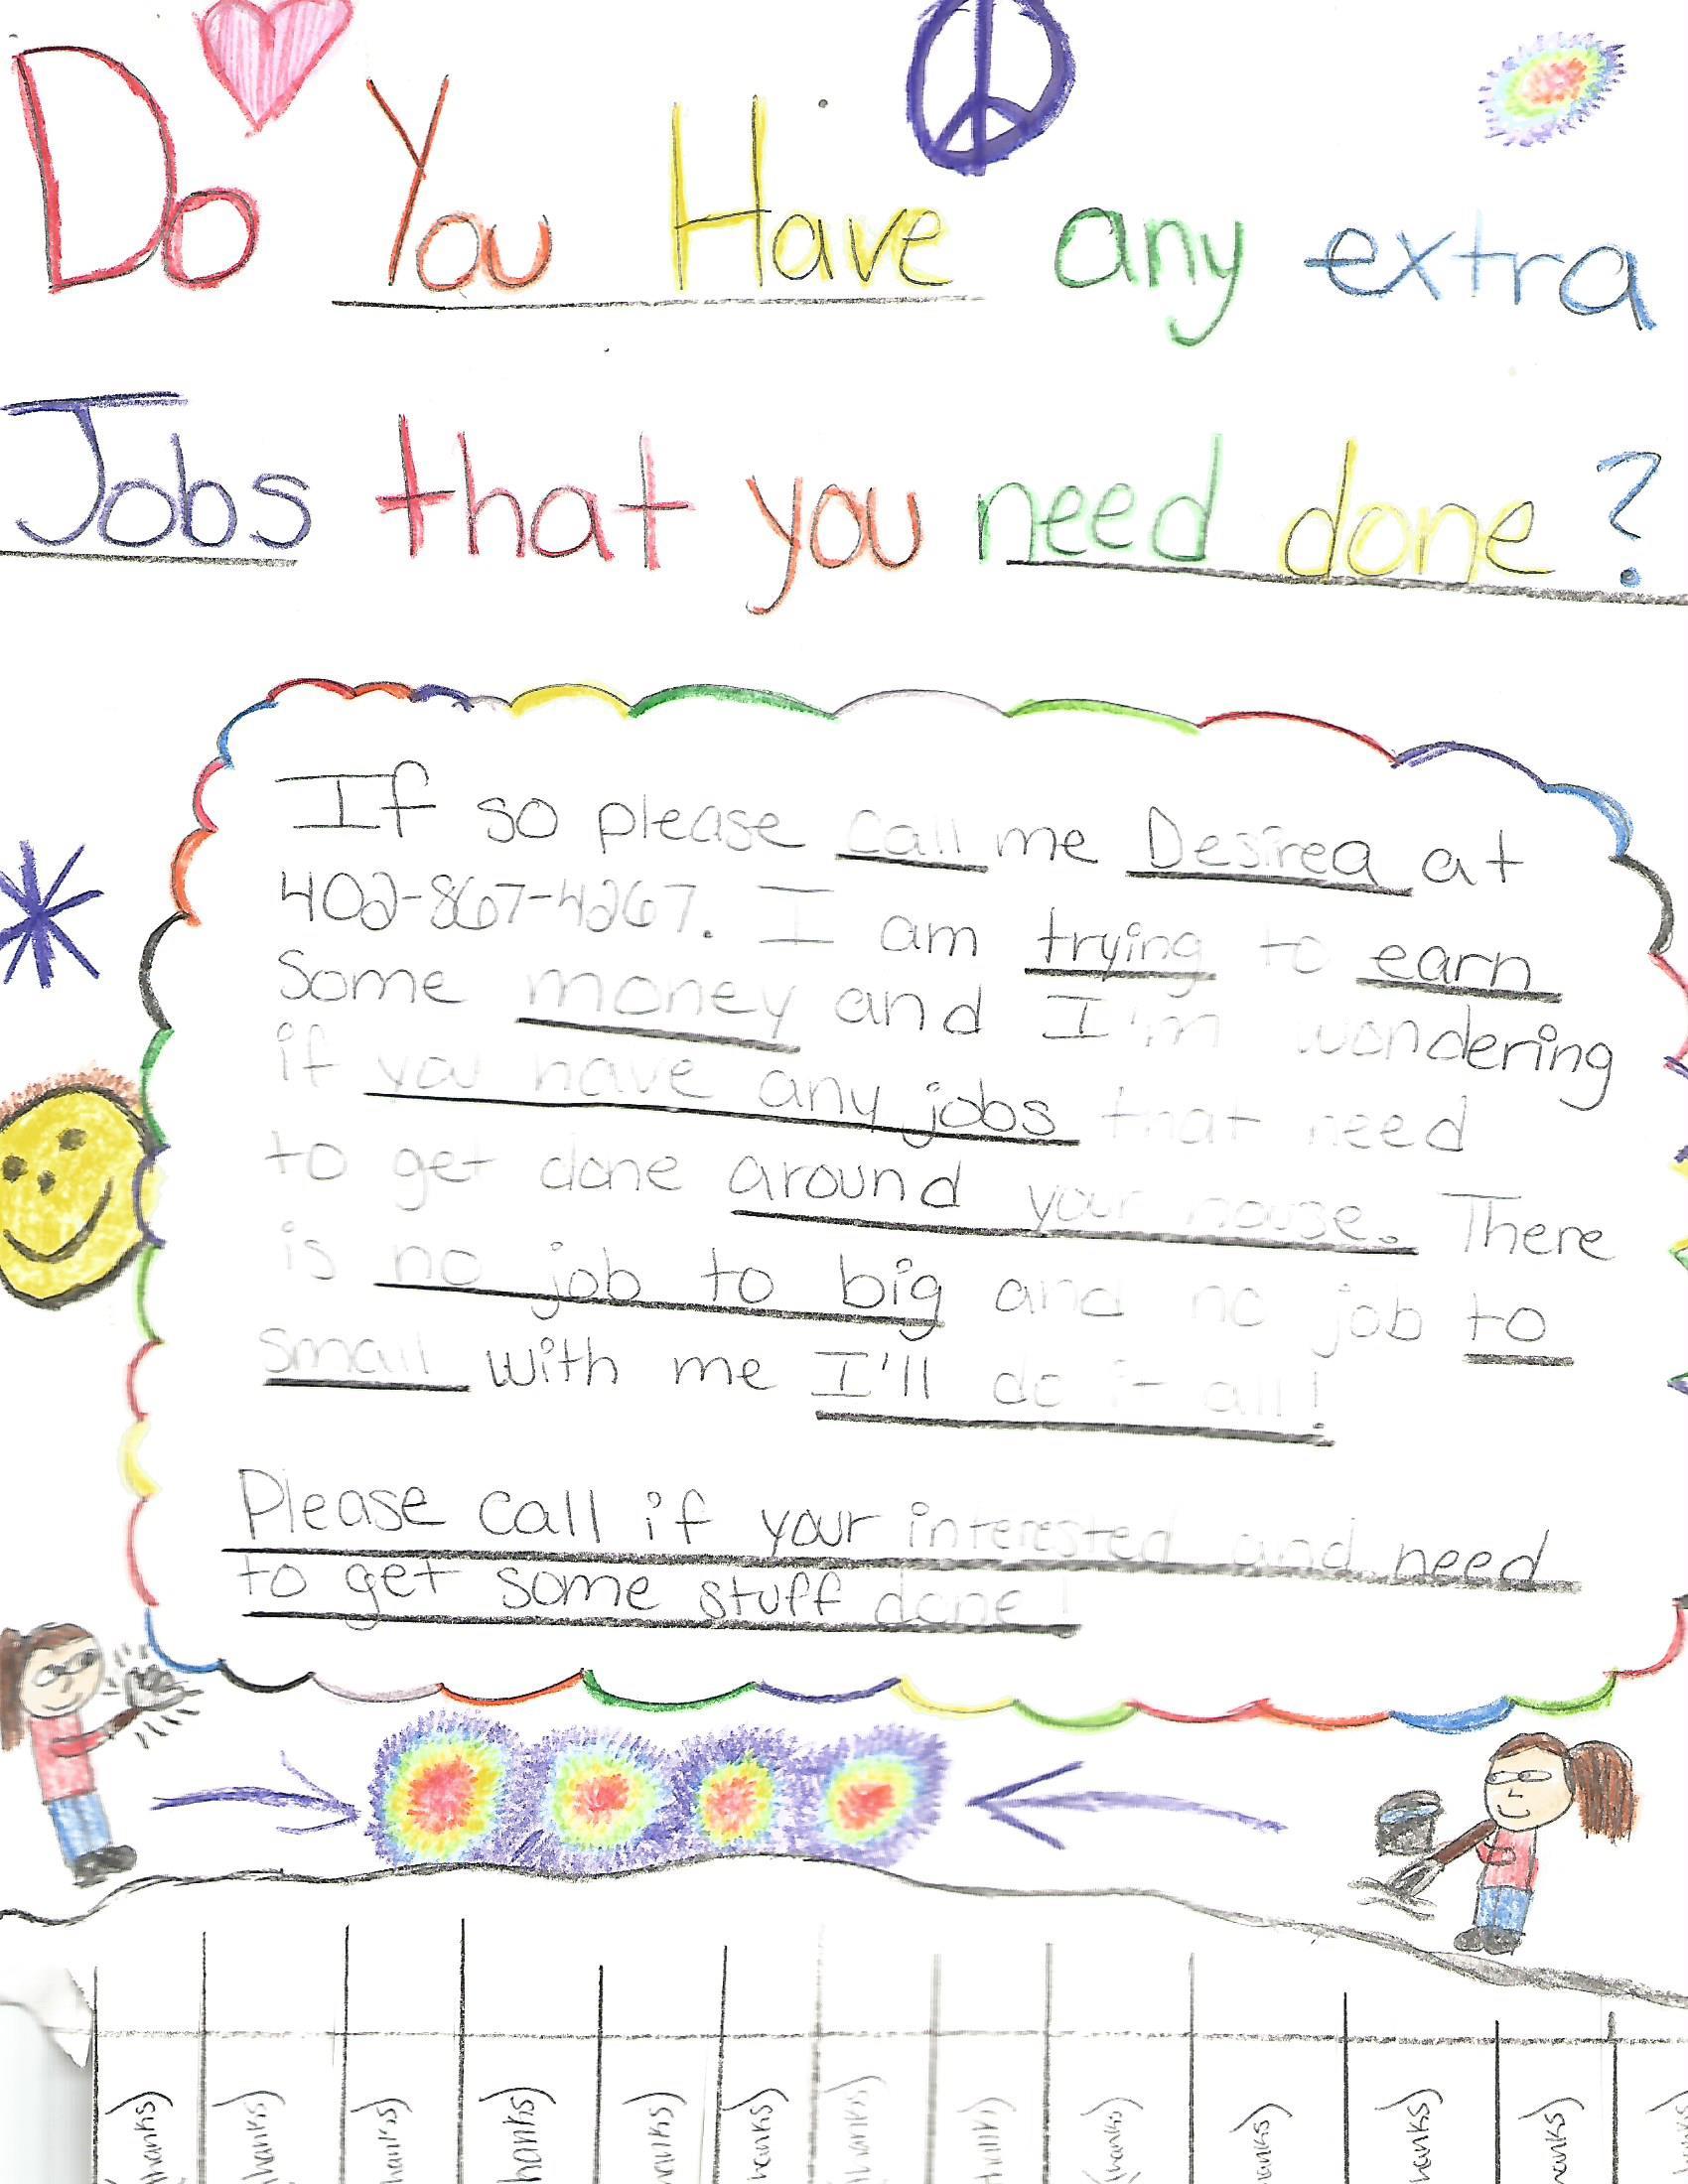 Do You Have any extra
Jobs that you need done?
If so please call me Desirea at
402-867-4267. I am trying to earn
Some money and I'm wondering
if you have any jobs that need
to get done around your house. There
is no job to big and no job to
small with me I'll do it all!
Please call if your interested and need
to get some stuff done!
(hanks)
hanks)
hanks)
hanks)
hanks)
hanks)
hanks)
hanks)
(hanks)
hanks)
hanks)
hanks)